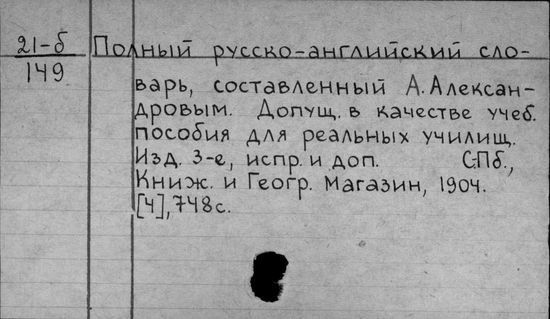 21-б Полный русско-английский сло-
149
варь, составленный А. Алексан-
дровым. Допущ. в качестве учеб.
пособия для реальных училищ.
Изд. 3-е, испр. и доп. СПб.,
Книж. и Геогр. магазин, 1904.
[4], 748 с.